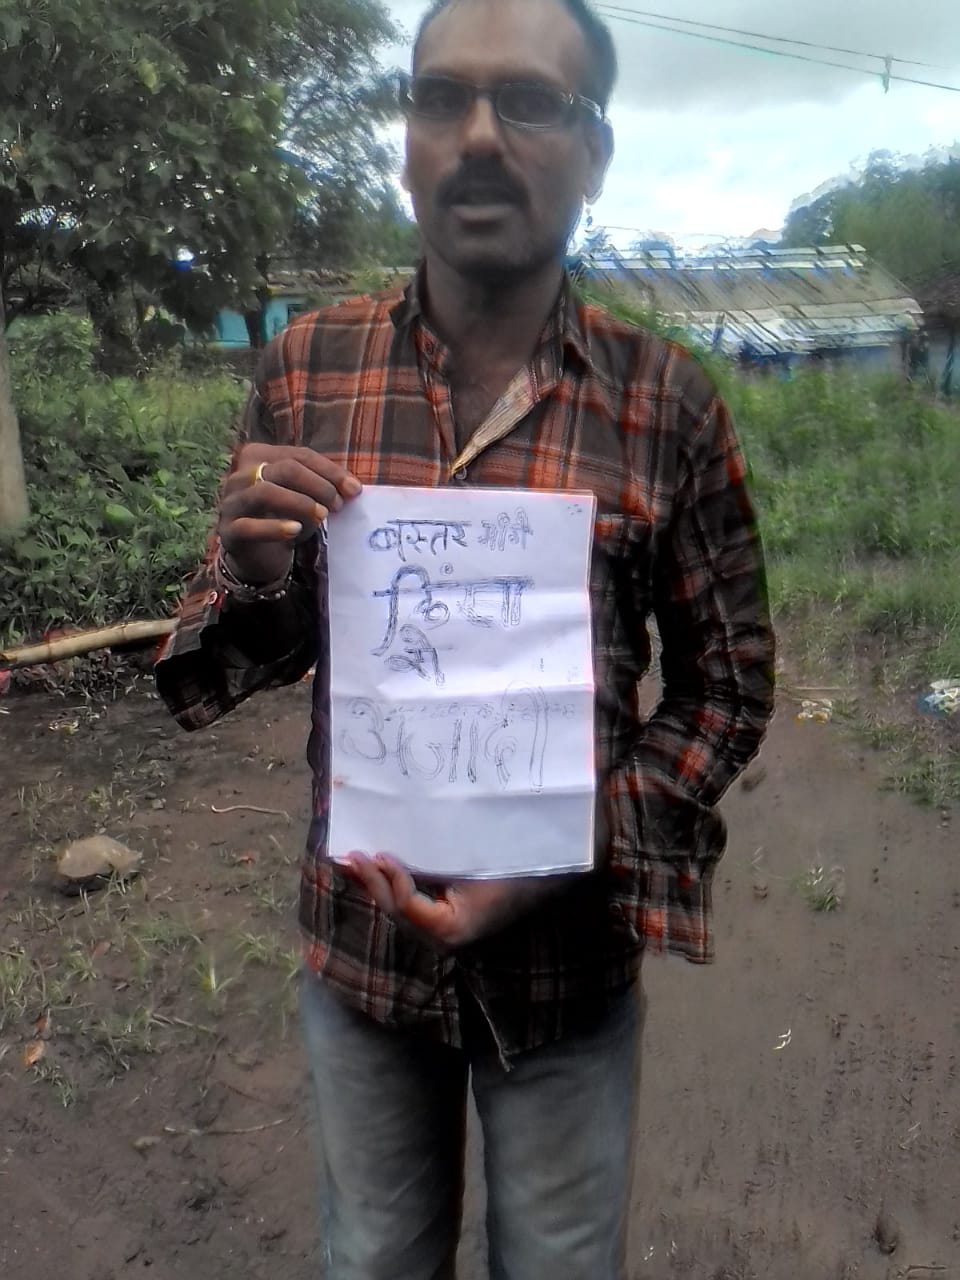 बस्तर मांगे
हिंसा
से
आजादी